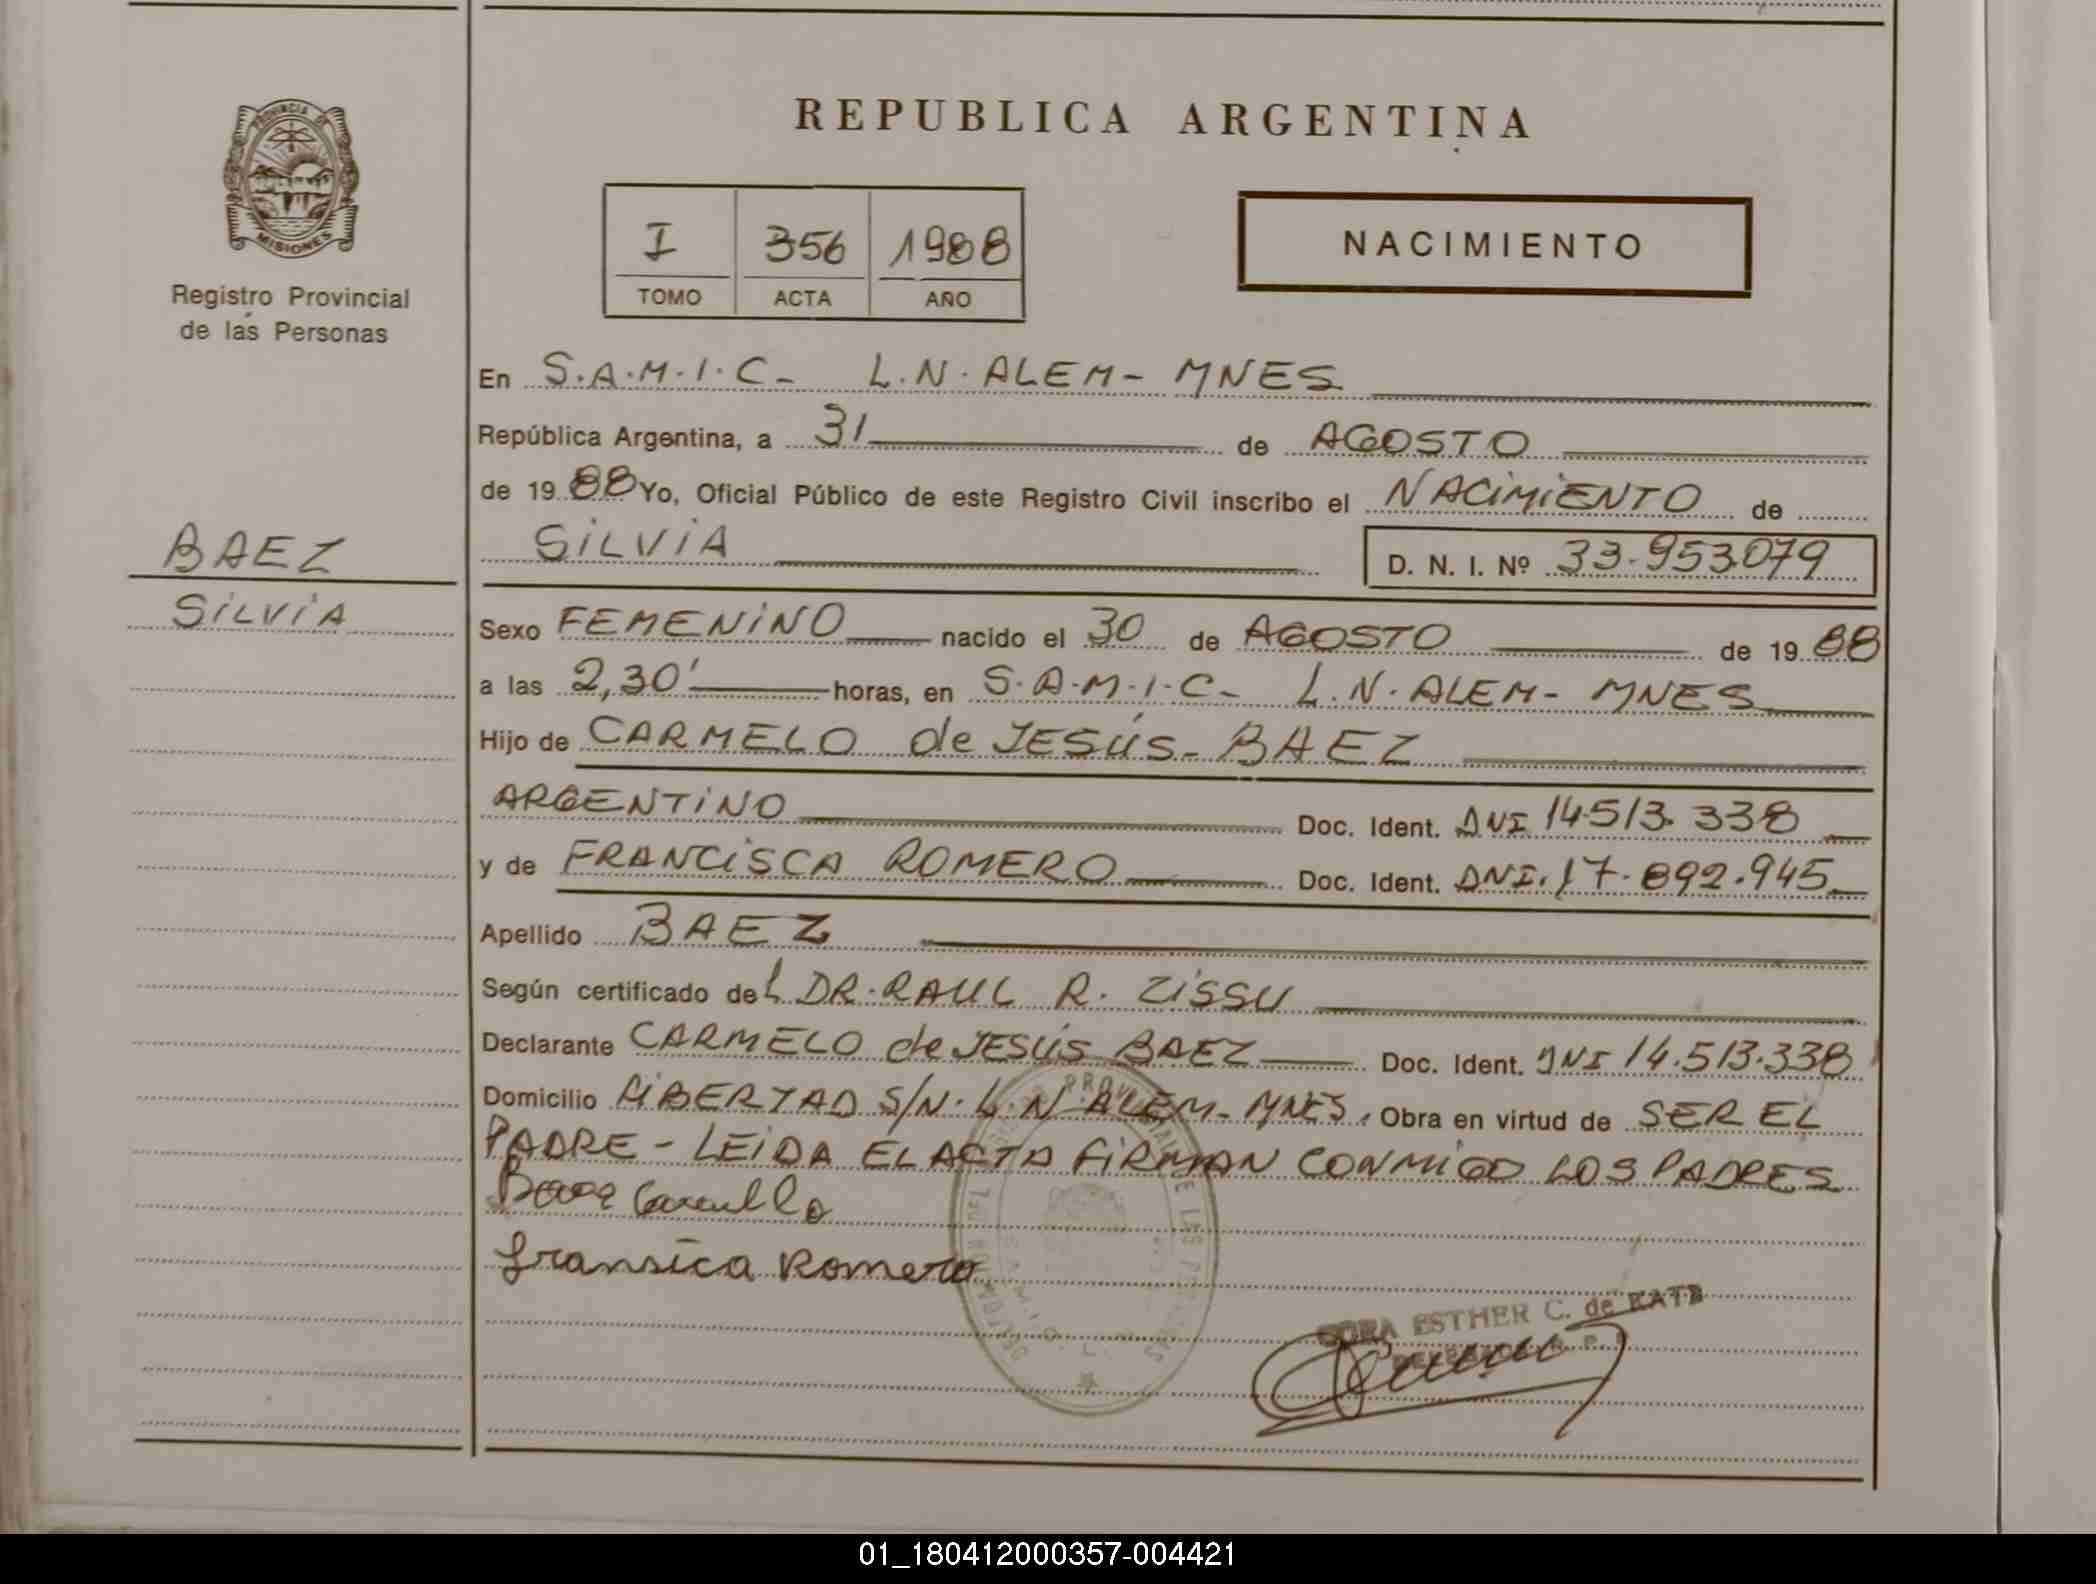 REPUBLICA ARGENTINA
PROVINCIA DE
MISIONES
Registro Provincial
de las Personas
I 356 1988
TOMO ACTA AÑO
NACIMIENTO
En S.A.M.I.C- L.N.ALEM- MNES
República Argentina, a 31 de AGOSTO
de 19 88 Yo, Oficial Público de este Registro Civil inscribo el NACIMIENTO de
SILVIA D. N. I. Nº 33.953.079
BAEZ
SILVIA
Sexo FEMENINO nacido el 30 de AGOSTO de 19 88
a las 2,30' horas, en S.A.M.I.C- L.N.ALEM- MNES
Hijo de CARMELO de JESÚS- BAEZ
ARGENTINO Doc. Ident. DNI 14.513.338
y de FRANCISCA ROMERO Doc. Ident. DNI. 17.892.945
Apellido BAEZ
Según certificado del DR. RAUL R. ZISSU
Declarante CARMELO de JESÚS BAEZ Doc. Ident. DNI 14.513.338
Domicilio LIBERTAD S/N. L.N.ALEM- MNES. Obra en virtud de SER EL
PADRE - LEIDA EL ACTA FIRMAN CONMIGO LOS PADRES
Baez
Fransica Romero
ESTHER C. de
01_180412000357-004421